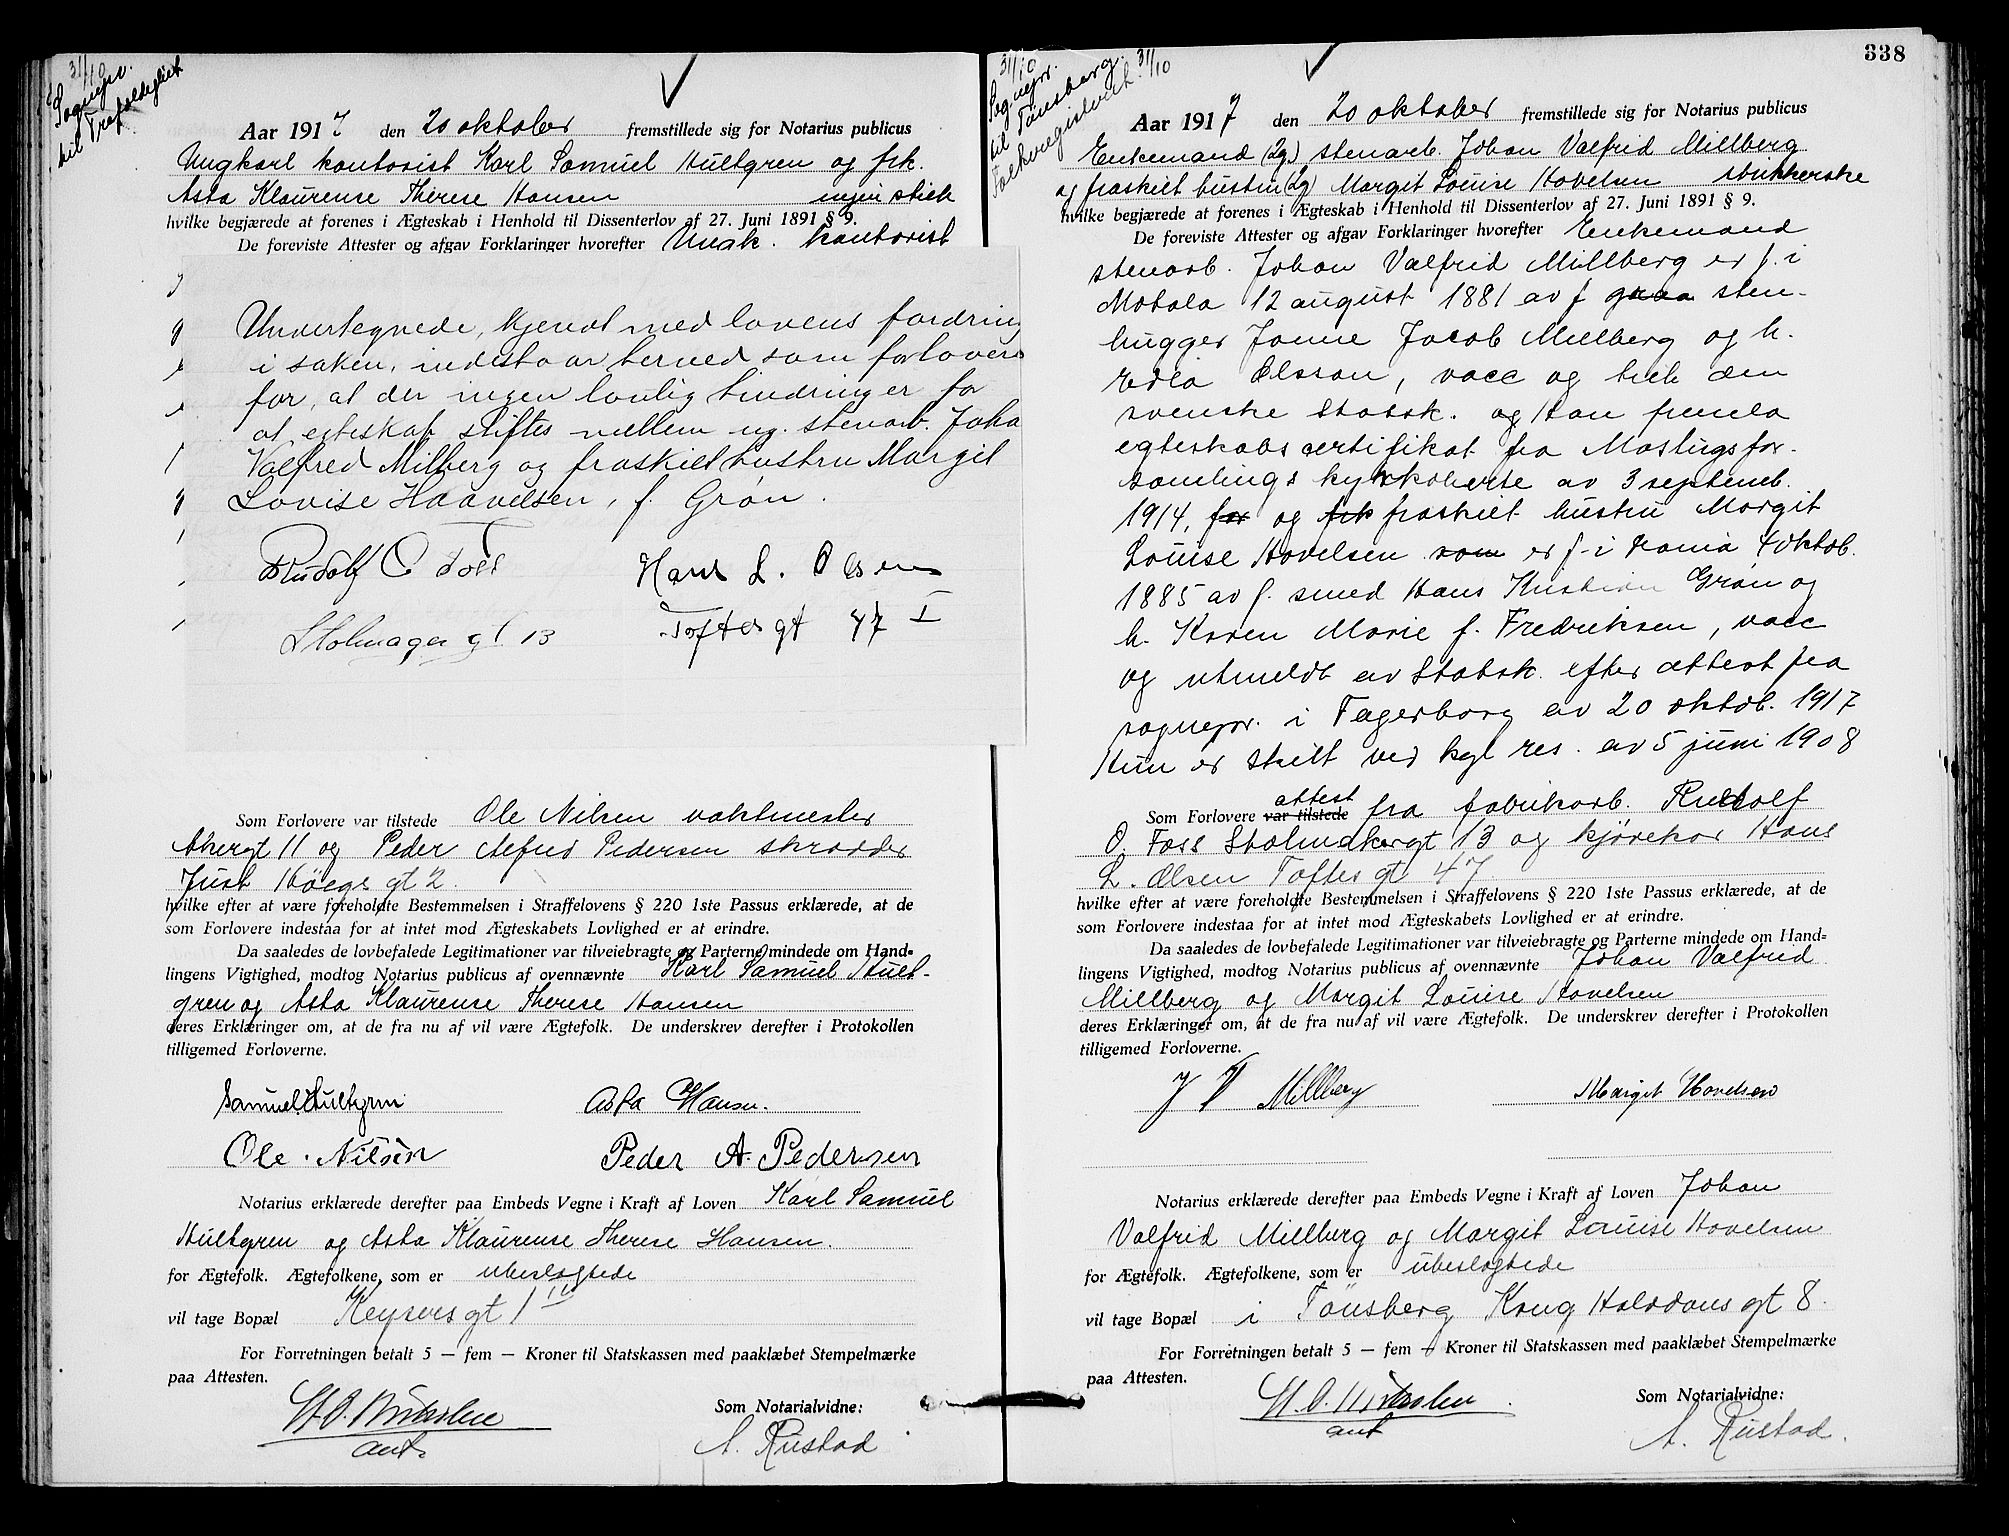 31/10
Sognepr.
til Trefoldighet
Aar 1917 den 20 oktober fremstillede sig for Notarius publicus
Ungkarl kontorist Karl Samuel Hultgren og frk.
Asta Klaurense Therese Hansen ingen stick
hvilke begjærede at forenes i Ægteskab i Henhold til Dissenterlov af 27. Juni 1891 § 9.
De foreviste Attester og afgav Forklaringer hvorefter Ungk. kontorist
Undertegnede, kjendt med lovens fordring
i saken, indestaar herved som forlovere
for, at der ingen lovlig hindring er for
at egteskap stiftes mellem ug. stenarb. Joha
Valfred Milberg og fraskilt hustru Margit
Lovise Haavelsen, f. Grøn.
Rudolf O Foss Hans L. Olsen
Stolmager gt 13 Toftes gt 47 I
Som Forlovere var tilstede Ole Nilsen vaktmester
Akergt 11 og Peder Alfred Pedersen skrædder
Just Høegs gt 2.
hvilke efter at være foreholdte Bestemmelsen i Straffelovens § 220 1ste Passus erklærede, at de
som Forlovere indestaa for at intet mod Ægteskabets Lovlighed er at erindre.
Da saaledes de lovbefalede Legitimationer var tilveiebragte og Parterne mindede om Hand=
lingens Vigtighed, modtog Notarius publicus af ovennævnte Karl Samuel Hult-
gren og Asta Klaurense Therese Hansen
deres Erklæringer om, at de fra nu af vil være Ægtefolk. De underskrev derefter i Protokollen
tilligemed Forloverne.
Samuel Hultgren Asta Hansen.
Ole Nilsen Peder A. Pedersen
Notarius erklærede derefter paa Embeds Vegne i Kraft af Loven Karl Samuel
Hultgren og Asta Klaurense Therese Hansen.
for Ægtefolk. Ægtefolkene, som er ubeslegtede
vil tage Bopæl Keysers gt 1 IV
For Forretningen betalt 5 — fem — Kroner til Statskassen med paaklæbet Stempelmærke
paa Attesten.
Som Notarialvidne:
aut. A. Rustad
338
31/10
Sognepr.
til Tønsberg.
Folkeregistret 31/10
Aar 1917 den 20 oktober fremstillede sig for Notarius publicus
Enkemand (2g.) stenarb. Johan Valfrid Millberg
og fraskilt hustru (2g) Margit Louise Hovelsen strikkerske
hvilke begjærede at forenes i Ægteskab i Henhold til Dissenterlov af 27. Juni 1891 § 9.
De foreviste Attester og afgav Forklaringer hvorefter Enkemand
stenarb. Johan Valfrid Millberg er f. i
Motala 12 august 1881 av f sten-
hugger Jonne Jacob Millberg og h.
Edla Olsson, vacc og tilh den
svenske Statsk. og Han fremla
egteskabscertifikat fra Maslugsfor-
samlings kyrkoherre av 3 septemb.
1914, for og frk fraskilt hustru Margit
Louise Hovelsen som er f. i Kania 4 oktob.
1885 av f. smed Hans Kristian Grøn og
h. Karen Marie f. Fredriksen, vacc
og utmeldt av Statsk. efter attest fra
sognepr. i Fagerborg av 20 oktob. 1917
Hun er skilt ved kgl res. av 5 juni 1908
attest
Som Forlovere var tilstede fra fabrikarb. Rudolf
O. Foss Stolmakergt 13 og kjørekar Hans
L. Olsen Toftes gt 47.
hvilke efter at være foreholdte Bestemmelsen i Straffelovens § 220 1ste Passus erklærede, at de
som Forlovere indestaa for at intet mod Ægteskabets Lovlighed er at erindre.
Da saaledes de lovbefalede Legitimationer var tilveiebragte og Parterne mindede om Hand=
lingens Vigtighed, modtog Notarius publicus af ovennævnte Johan Valfrid
Millberg og Margit Louise Hovelsen
deres Erklæringer om, at de fra nu af vil være Ægtefolk. De underskrev derefter i Protokollen
tilligemed Forloverne.
J V Millberg Margit Hovelsen
Notarius erklærede derefter paa Embeds Vegne i Kraft af Loven Johan
Valfrid Millberg og Margit Louise Hovelsen
for Ægtefolk. Ægtefolkene, som er ubeslegtede
vil tage Bopæl i Tønsberg Kong Halvdans gt 8.
For Forretningen betalt 5 — fem — Kroner til Statskassen med paaklæbet Stempelmærke
paa Attesten.
Som Notarialvidne:
aut A. Rustad.